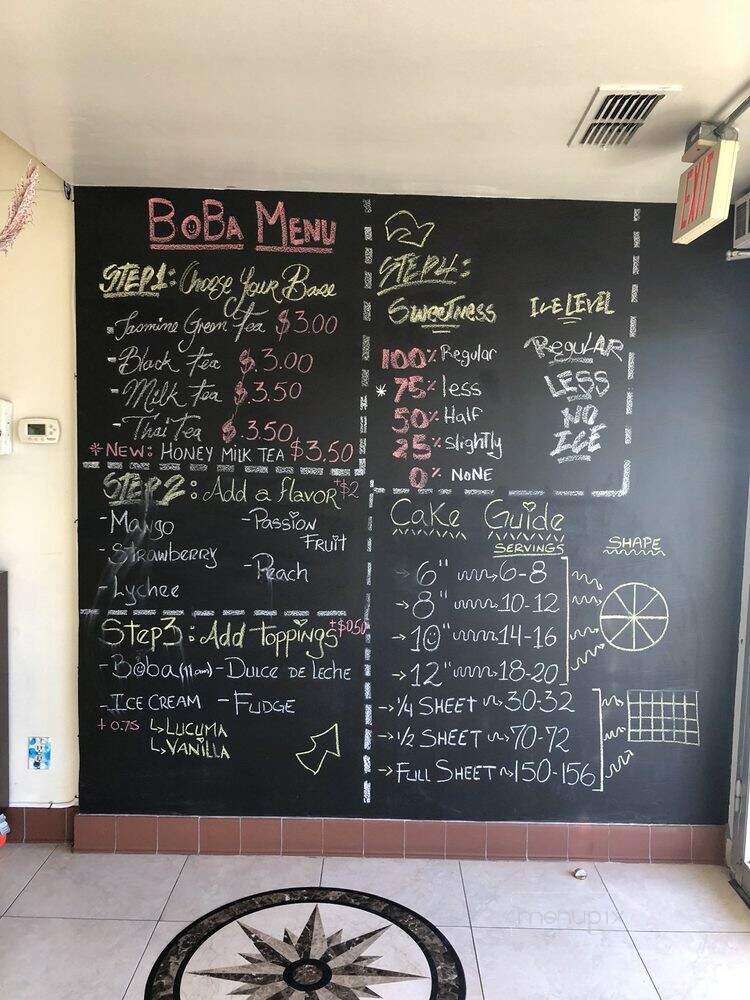 BoBa Menu
STEP1: Choose Your Base
-Jasmine Green Tea $3.00
-Black Tea $3.00
-Milk Tea $3.50
-Thai Tea $3.50
*New: HONEY MILK TEA $3.50
STEP2: Add a flavor +$2
-Mango
-Strawberry
-Lychee
-Passion Fruit
-Peach
Step3: Add Toppings +$0.50
-Boba (11am) -Dulce de Leche
-Ice Cream -Fudge
+0.75 Lucuma
Vanilla
STEP4:
Sweetness
100% Regular
*75% less
50% Half
25% slightly
0% None
Ice Level
Regular
Less
No
Ice
Cake Guide
SERVINGS
SHAPE
6" 6-8
8" 10-12
10" 14-16
12" 18-20
1/4 Sheet 30-32
1/2 Sheet 70-72
Full Sheet 150-156
EXIT
menupix